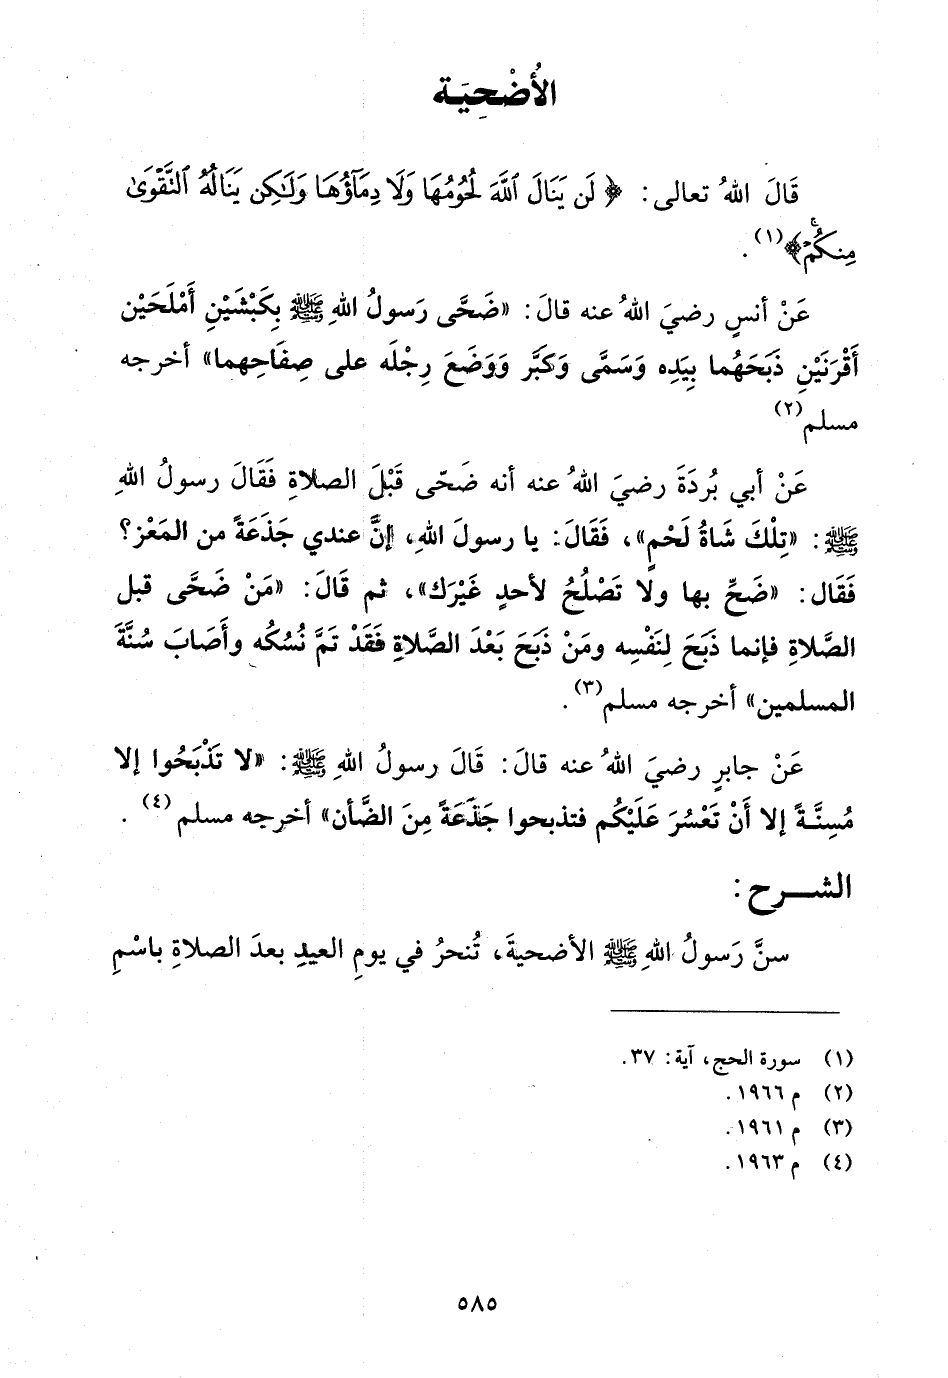 الأُضْحِيَة
قَالَ اللهُ تعالى: ﴿لَن يَنَالَ ٱللَّهَ لُحُومُهَا وَلَا دِمَآؤُهَا وَلَٰكِن يَنَالُهُ ٱلتَّقْوَىٰ
مِنكُمْۚ﴾(١).
عَنْ أنسٍ رضيَ اللهُ عنه قالَ: «ضَحَّى رَسولُ اللهِ ﷺ بِكَبْشَيْنِ أَمْلَحَيْن
أَقْرَنَيْنِ ذَبَحَهُما بِيَدِه وَسَمَّى وَكَبَّر وَوَضَعَ رِجْلَه على صِفَاحِهما» أخرجه
مسلم(٢)
عَنْ أبي بُردَةَ رضيَ اللهُ عنه أنه ضَحّى قَبْلَ الصلاةِ فَقَالَ رسولُ اللهِ
ﷺ: «تِلْكَ شَاةُ لَحْمٍ»، فَقَالَ: يا رسولَ اللهِ، إنَّ عندي جَذَعَةً من المَعْز؟
فَقَال: «ضَحِّ بها ولا تَصْلُحُ لأحدٍ غَيْرَك»، ثم قَالَ: «مَنْ ضَحَّى قبل
الصَّلاةِ فإنما ذَبَحَ لِنَفْسِه ومَنْ ذَبَحَ بَعْدَ الصَّلاةِ فَقَدْ تَمَّ نُسُكُه وأَصَابَ سُنَّةَ
المسلمين» أخرجه مسلم(٣).
عَنْ جابرٍ رضيَ اللهُ عنه قالَ: قَالَ رسولُ اللهِ ﷺ: «لا تَذْبَحُوا إلا
مُسِنَّةً إلا أَنْ تَعْسُرَ عَلَيْكُم فتذبحوا جَذَعَةً مِنَ الضَّأن» أخرجه مسلم(٤).
الشرح:
سنَّ رَسولُ اللهِ ﷺ الأضحيةَ، تُنحرُ في يومِ العيدِ بعدَ الصلاةِ باسْمِ
(١) سورة الحج، آية: ٣٧.
(٢) م ١٩٦٦.
(٣) م ١٩٦١.
(٤) م ١٩٦٣.
٥٨٥